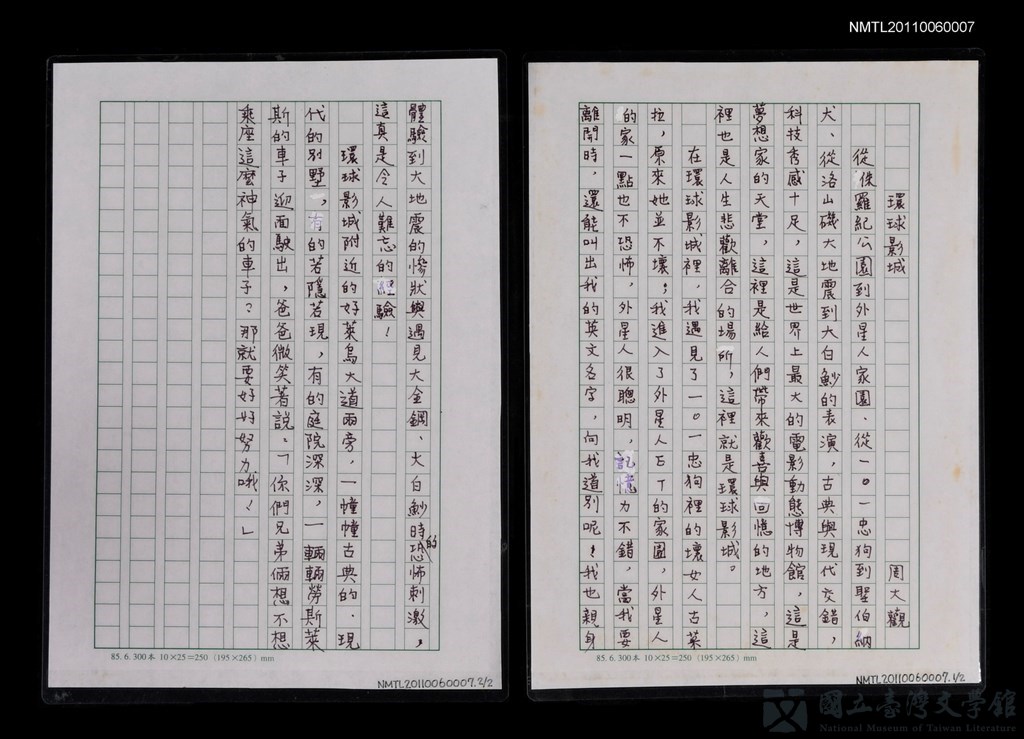 NMTL20110060007
環球影城　周大觀
從侏羅紀公園到外星人家園、從一〇一忠狗到聖伯納
犬、從洛山磯大地震到大白鯊的表演，古典與現代交錯，
科技秀感十足，這是世界上最大的電影動態博物館，這是
夢想家的天堂，這裡是給人們帶來歡喜與回憶的地方，這
裡也是人生悲歡離合的場所，這裡就是環球影城。
在環球影城裡，我遇見了一〇一忠狗裡的壞女人古萊
拉，原來她並不壞；我進入了外星人ET的家園，外星人
的家一點也不恐怖，外星人很聰明，記憶力不錯，當我要
離開時，還能叫出我的英文名字，向我道別呢！我也親身
85. 6. 300本 10×25=250 (195×265) mm
NMTL20110060007.1/2
體驗到大地震的慘狀與遇見大金鋼、大白鯊時的恐怖刺激，
這真是令人難忘的經驗！
環球影城附近的好萊烏大道兩旁，一幢幢古典的．現
代的別墅，有的若隱若現，有的庭院深深，一輛輛勞斯萊
斯的車子迎面駛出，爸爸微笑著說：「你們兄弟倆想不想
乘座這麼神氣的車子？那就要好好努力哦！」
85. 6. 300本 10×25=250 (195×265) mm
NMTL20110060007.2/2
國立臺灣文學館
National Museum of Taiwan Literature